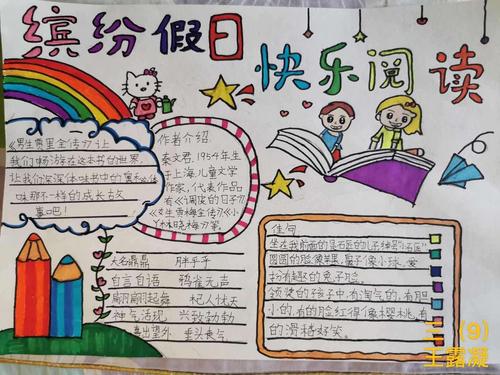 缤纷假日
快乐阅读
《男生贾里全传》让
我们畅游在这本书的世界,
让我们深深体味书中的
味那不一样的成长故
事吧!
作者介绍:
秦文君,1954年生
于上海,儿童文学
作家,代表作品
有《十六岁的少女》
《女生贾梅全传》《小
丫林晓梅》等。
大名鼎鼎 胖乎乎
自言自语 鸦雀无声
翩翩起舞 杞人忧天
神气活现 兴致勃勃
喜出望外 垂头丧气
佳句
圆圆的脸像苹果,鼻子像小球,安
扮有趣的兔子脸。
领奖的孩子中,有淘气的,有胆
小的,有的脸红得像樱桃,有
的滑稽好笑。
三(9)
王露凝